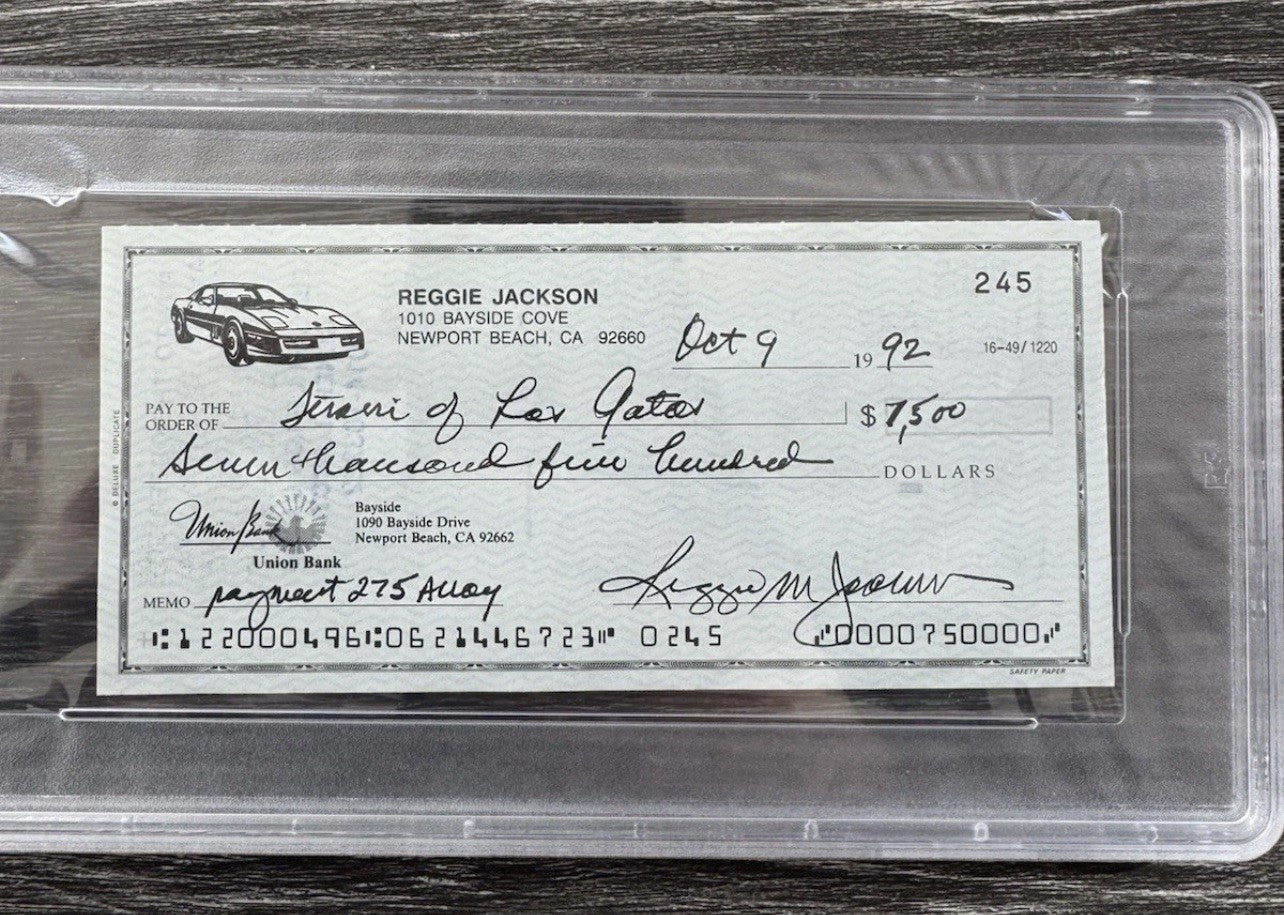 245
REGGIE JACKSON
1010 BAYSIDE COVE
NEWPORT BEACH, CA 92660
Oct 9 19 92
16-49/1220
PAY TO THE
ORDER OF Ferrari of Los Gatos $ 7,500
Seven thousand five hundred DOLLARS
Union Bank
Bayside
1090 Bayside Drive
Newport Beach, CA 92662
Union Bank
MEMO payment 275 Alloy Reggie M Jackson
⑆122000496⑆0621446723⑈ 0245 ⑇0000750000⑇
SAFETY PAPER
© DELUXE DUPLICATE